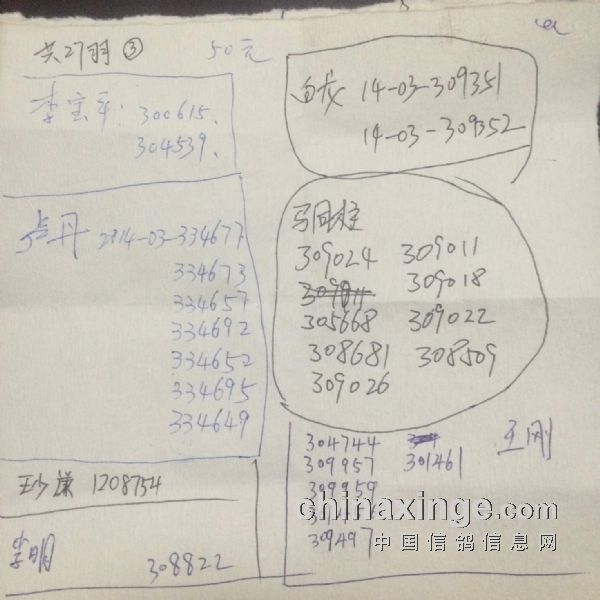 共27羽 ③ 50元
李宝平: 300615.
304539.
卢丹 2014-03-334677
334673
334657
334692
334652
334695
334649
王少谦 1208754
李明 308822
14-03-309351
14-03-309352
马国柱
309024 309011
309018
305668 309022
308681 308509
309026
304744 王刚
309957 301461
309959
309497
chinaxinge.com
中国信鸽信息网